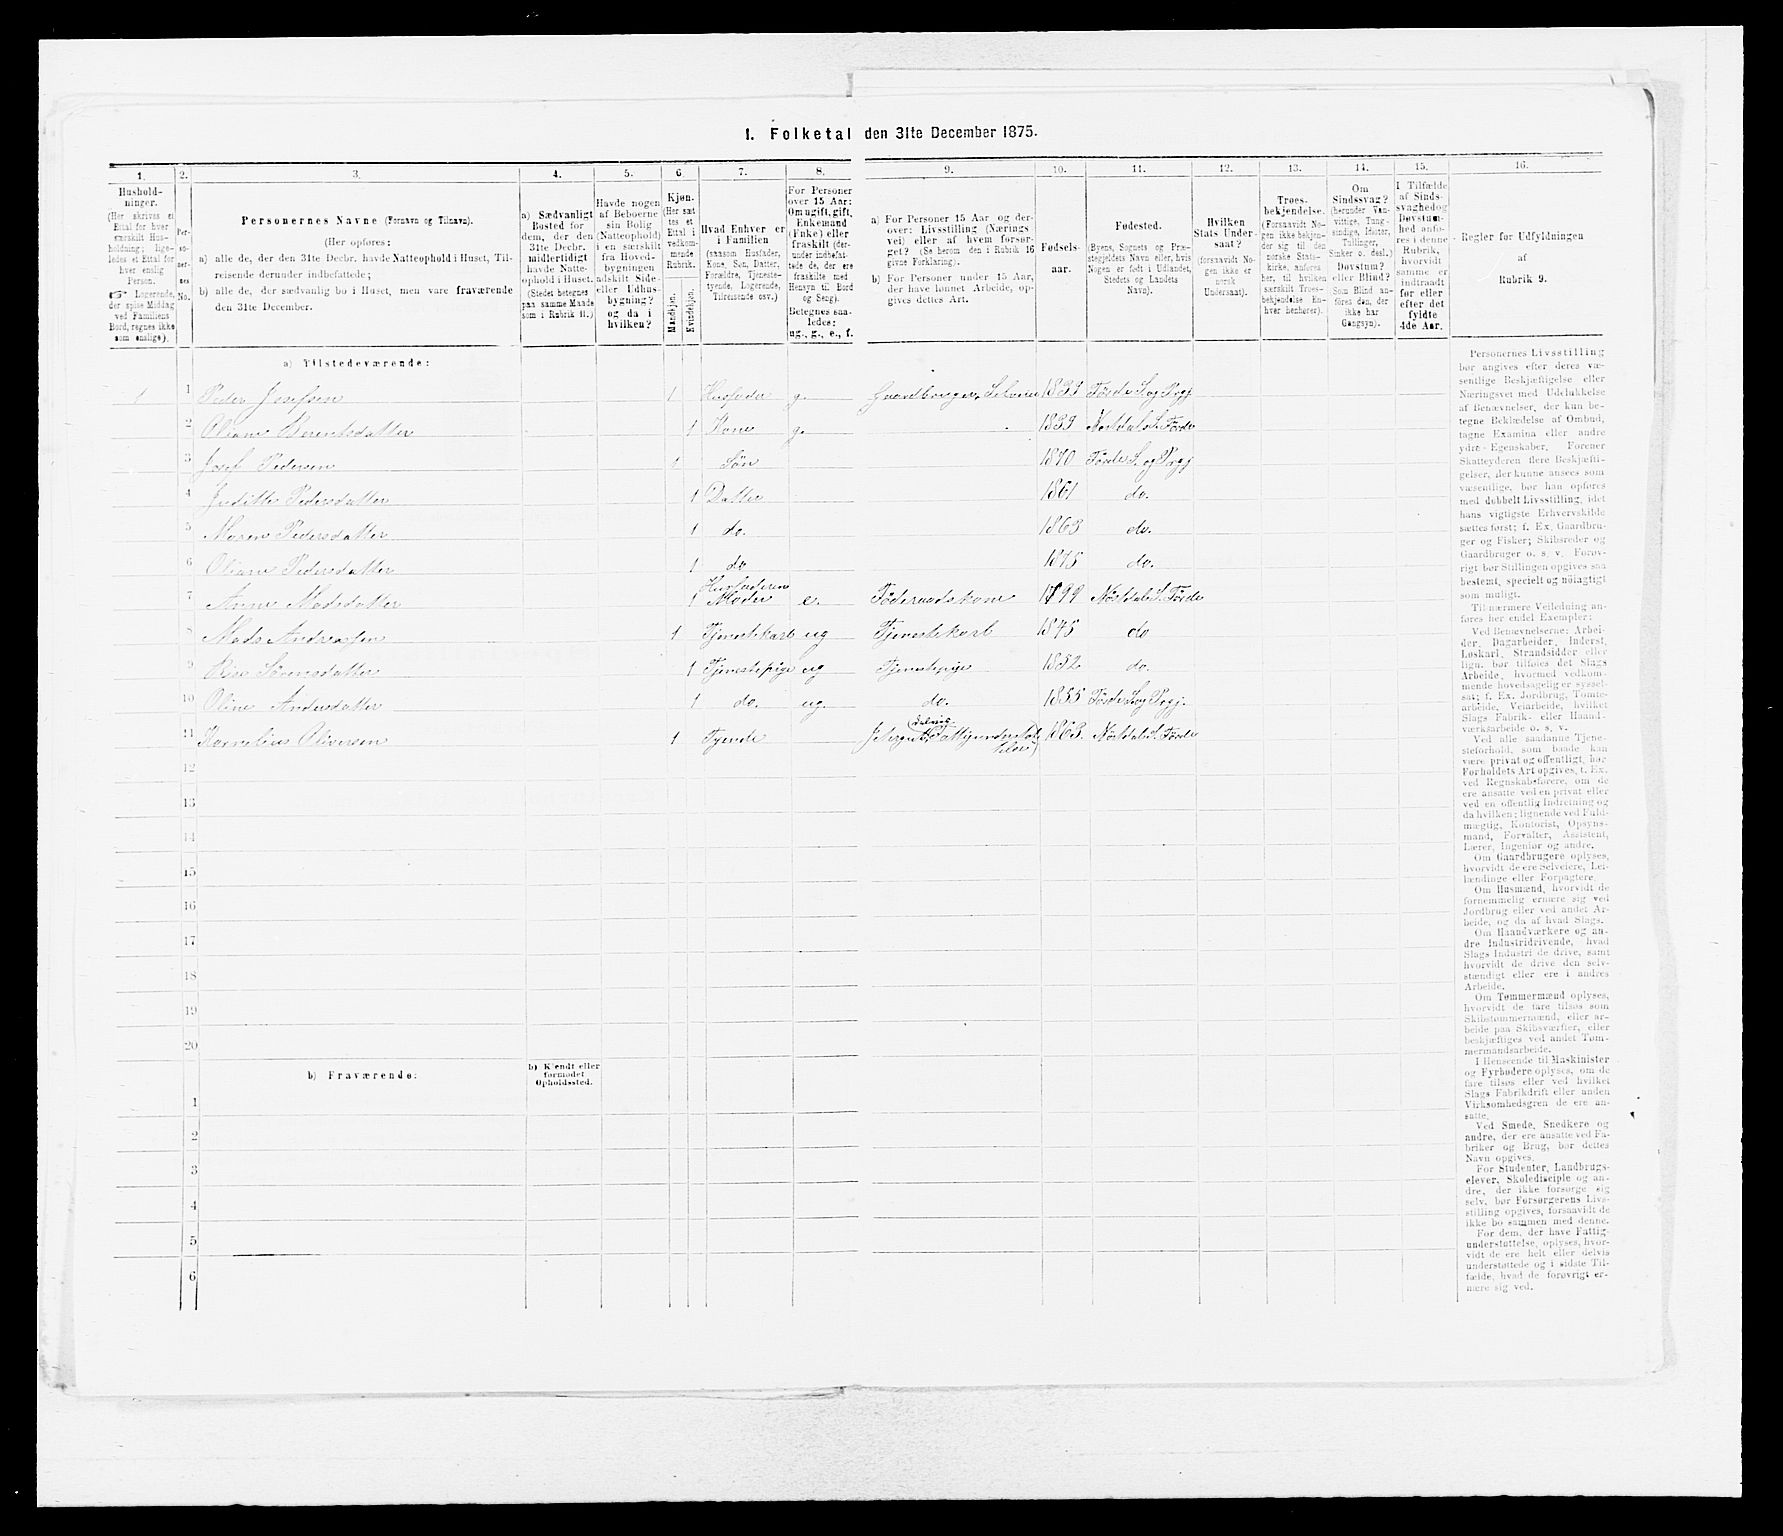 1. Folketal den 31te December 1875.
1. 2. 3. 4. 5. 6. 7. 8. 9. 10. 11. 12. 13. 14. 15. 16.
Hushold-
ninger.
(Her skrives et
Ettal for hver
særskilt Hus-
holdning; lige-
ledes et Ettal for
hver enslig
Person.
☞ Logerende,
der spise Middag
ved Familiens
Bord, regnes ikke
som enslige).
Per-
so-
ner-
nes
No.
Personernes Navne (Fornavn og Tilnavn).
(Her opføres:
a) alle de, der den 31te Decbr. havde Natteophold i Huset, Til-
reisende derunder indbefattede;
b) alle de, der sædvanlig bo i Huset, men vare fraværende
den 31te December.
a) Sædvanligt
Bosted for
dem, der den
31te Decbr.
midlertidigt
havde Natte-
ophold i Huset.
(Stedet betegnes
paa samme Maade
som i Rubrik 11.)
Havde nogen
af Beboerne
sin Bolig
(Natteophold)
i en særskilt
fra Hoved-
bygningen
adskilt Side-
eller Udhus-
bygning?
og da i
hvilken?
Kjøn.
(Her sæt-
tes et
Ettal i
vedkom-
mende
Rubrik.
Mandkjøn.
Kvindekjøn.
Hvad Enhver er
i Familien
(saasom Husfader,
Kone, Søn, Datter,
Forældre, Tjeneste-
tyende, Logerende,
Tilreisende osv.)
For Personer
over 15 Aar:
Om ugift, gift,
Enkemand
(Enke) eller
fraskilt (der-
under indbefat-
tede de, der ere
fraskilte med
Hensyn til Bord
og Seng).
Betegnes saa-
ledes:
ug., g., e., f.
a) For Personer 15 Aar og der-
over: Livsstilling (Nærings-
vei) eller af hvem forsør-
get? (Se herom den i Rubrik 16
givne Forklaring).
b) For Personer under 15 Aar,
der have lønnet Arbeide, op-
gives dettes Art.
Fødsels-
aar.
Fødested.
(Byens, Sognets og Præ-
stegjeldets Navn eller, hvis
Nogen er født i Udlandet,
Stedets og Landets
Navn).
Hvilken
Stats Under-
saat?
(forsaavidt No-
gen ikke er
norsk
Undersaat).
Troes-
bekjendelse.
(Forsaavidt No-
gen ikke bekjen-
der sig til den
norske Stats-
kirke, anføres
her, til hvilken
særskilt Troes-
bekjendelse En-
hver henhører).
Om
Sindssvag?
(herunder Van-
vittige, Tung-
sindige, Idioter,
Tullinger,
Sinker o. desl.)
Døvstum?
eller Blind?
Som Blind an-
føres den, der
ikke har
Gangsyn).
I Tilfælde
af Sinds-
svaghed og
Døvstum-
hed anfø-
res i denne
Rubrik,
hvorvidt
samme er
indtraadt
før eller
efter det
fyldte
4de Aar.
Regler for Udfyldningen
af
Rubrik 9.
a) Tilstedeværende:
1 1 Peder Josefsen 1 Husfader g. Gaardbruger, Selveier 1833 Førde S. og Prgj
2 Oliane Berentsdatter 1 Kone g. 1839 Nøstdals S. Førde
3 Josef Pedersen 1 Søn 1870 Førde S. og Prgj
4 Juditte Pedersdatter 1 Datter 1861 do.
5 Maren Pedersdatter 1 do. 1863 do.
6 Oliane Pedersdatter 1 do 1875 do.
7 Anne Madsdatter 1 Husfaderens Moder e. Føderaadskone 1799 Nøstdals S. Førde
8 Mads Andreassen 1 Tjenestekarl ug Tjenestekarl 1845 do
9 Sørensdatter 1 Tjenestepige ug Tjenestepige 1852 do.
10 Oline Andersdatter 1 do. ug. do. 1855 Førde S. og Prgj.
11 Kornelius Oliversen 1 Tyende delvis Fattigunderstøt- 1863. Nøstdals S. Førde
12
13
14
15
16
17
18
19
20
b) Fraværende:
b) Kjendt eller
formodet
Opholdssted.
1
2
3
4
5
6
Personernes Livsstilling
bør angives efter deres væ-
sentlige Beskjæftigelse eller
Næringsvei med Udelukkelse
af Benævnelser, der kun be-
tegne Beklædelse af Ombud,
tagne Examina eller andre
ydre Egenskaber. Forener
Skatteyderen flere Beskjæfti-
gelser, der kunne ansees som
væsentlige, bør han opføres
med dobbelt Livsstilling, idet
hans vigtigste Erhvervskilde
sættes først; f. Ex. Gaardbru-
ger og Fisker; Skibsreder og
Gaardbruger o. s. v. Forøv-
rigt bør Stillingen opgives saa
bestemt, specielt og nøiagtigt
som muligt.
Til nærmere Veiledning an-
føres her endel Exempler:
Ved Benævnelserne: Arbei-
der, Dagarbeider, Inderst,
Løskarl, Strandsidder eller
lign. bør tilføies det Slags
Arbeide, hvormed vedkom-
mende hovedsagelig er syssel-
sat; f. Ex. Jordbrug, Tomte-
arbeide, Veiarbeide, hvilket
Slags Fabrik- eller Haand-
værksarbeide o. s. v.
Ved alle saadanne Tjene-
steforhold, som baade kan
være privat og offentligt, bør
Forholdets Art opgives, t. Ex.
ved Regnskabsførere, om de
ere ansatte ved en privat eller
ved en offentlig Indretning og
da hvilken; lignende ved Fuld-
mægtig, Kontorist, Opsyns-
mand, Forvalter, Assistent,
Lærer, Ingeniør og andre.
Om Gaardbrugere oplyses,
hvorvidt de ere Selveiere, Lei-
lændinge eller Forpagtere.
Om Husmænd, hvorvidt de
fornemmelig ernære sig ved
Jordbrug eller ved andet Ar-
beide, og da af hvad Slags.
Om Haandværkere og an-
dre Industridrivende, hvad
Slags Industri de drive, samt
hvorvidt de drive den selv-
stændigt eller ere i andres
Arbeide.
Om Tømmermænd oplyses,
hvorvidt de fare tilsøs som
Skibstømmermænd, eller ar-
beide paa Skibsværfter, eller
beskjæftiges ved andet Tøm-
mermandsarbeide.
I Henseende til Maskinister
og Fyrbødere oplyses, om de
fare tilsøs eller ved hvilket
Slags Fabrikdrift eller anden
Virksomhedsgren de ere an-
satte.
Ved Smede, Snedkere og
andre, der ere ansatte ved Fa-
briker og Brug, bør dettes
Navn opgives.
For Studenter, Landbrugs-
elever, Skoledisciple og an-
dre, der ikke forsørge sig
selv, bør Forsørgerens Livs-
stilling opgives, forsaavidt de
ikke bo sammen med denne.
For dem, der have Fattig-
understøttelse, oplyses, hvor-
vidt de ere helt eller delvis
understøttede og i sidste Til-
fælde, hvad de forøvrigt er-
nære sig ved.